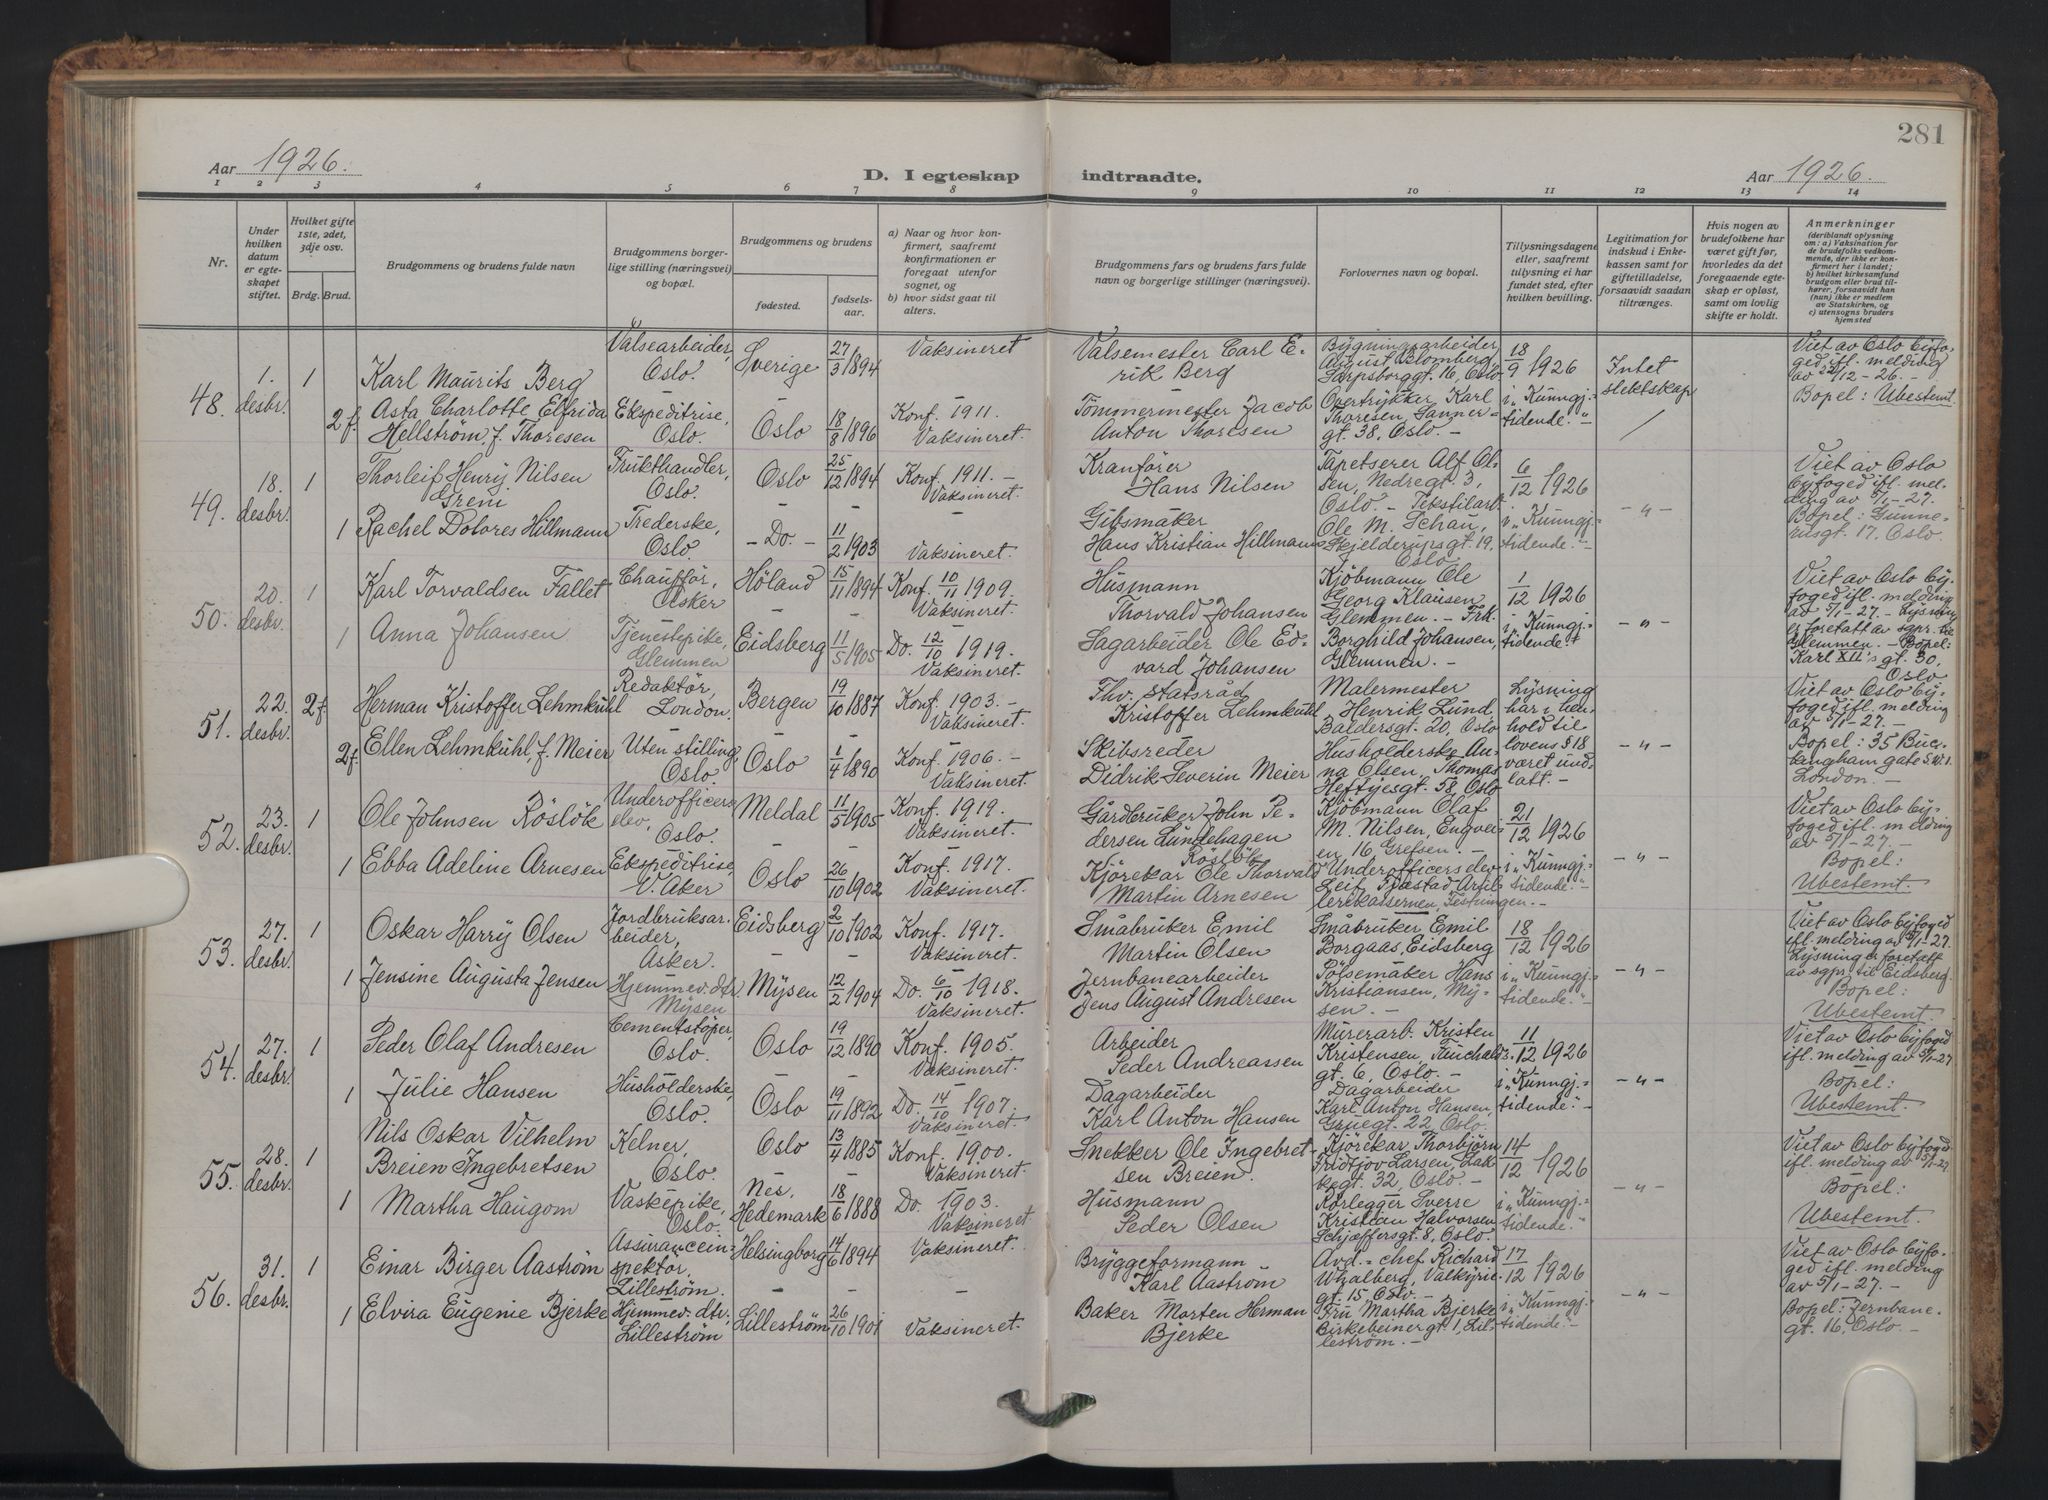 281
Aar 1926.
D. I egteskap indtraadte.
Aar 1926.
1 2 3 4 5 6 7 8 9 10 11 12 13 14
Nr.
Under hvilken datum er egteskapet stiftet.
Hvilket gifte 1ste, 2det, 3dje osv.
Brdg. Brud.
Brudgommens og brudens fulde navn
Brudgommens borgerlige stilling (næringsvei) og bopæl.
Brudgommens og brudens
fødested.
fødselsaar.
a) Naar og hvor konfirmert, saafremt konfirmationen er foregaat utenfor sognet, og
b) hvor sidst gaat til alters.
Brudgommens fars og brudens fars fulde navn og borgerlige stillinger (næringsvei).
Forlovernes navn og bopæl.
Tillysningsdagene eller, saafremt tillysning ei har fundet sted, efter hvilken bevilling.
Legitimation for indskud i Enkekassen samt for giftetilladelse, forsaavidt saadan tiltrænges.
Hvis nogen av brudefolkene har været gift før, hvorledes da det foregaaende egteskap er opløst, samt om lovlig skifte er holdt.
Anmerkninger
(deriblandt oplysning om: a) Vaksination for de brudefolks vedkommende, der ikke er konfirmert her i landet; b) hvilket kirkesamfund brudgom eller brud tilhører, forsaavidt han (hun) ikke er medlem av Statskirken, og c) utensogns bruders hjemsted
48. 1. desbr. 1
Karl Maurits Berg
Valsearbeider, Oslo.
Sverige 27/3 1894
Vaksineret
Valsemester Carl Erik Berg
Bygningsarbeider, August Blomberg, Sarpsborggt. 16, Oslo
18/9 1926
Intet slektskap
Viet av Oslo byfoged ifl. melding av 28/12-26. -
Bopel: Ubestemt
2 f.
Asta Charlotte Elfrida Hellström, f. Thoresen
Ekspeditrise, Oslo.
Oslo 18/8 1896
Konf. 1911. Vaksineret.
Tömmermester Jacob Anton Thoresen
Overtrykker Karl Thoresen, Sannergt. 38, Oslo. -
i „Kunngj.tidende."
49. 18. desbr. 1
Thorleif Henry Nilsen Greni
Frukthandler, Oslo.
Oslo 25/12 1894
Konf. 1911. - Vaksineret.
Kranfører Hans Nilsen
Tapetserer Alf Olsen, Nedregt 3, Oslo. -
6/12 1926
- " -
Viet av Oslo byfoged ifl. melding av 5/1-27.
Bopel: Gunnerusgt. 17, Oslo.
1
Rachel Dolores Hillmann
Trederske, Oslo.
- Do. - 11/2 1903
Vaksineret.
Gibsmaker Hans Kristian Hillmann
Tekstilarb. Ole M. Schau, Skjelderupsgt. 19, Oslo
i „Kunngj.tidende."
50. 20. desbr. 1
Karl Torvaldsen Fallet
Chauffør, Asker
Höland 15/11 1894
Konf. 10/11 1909. Vaksineret.
Husmann Thorvald Johansen
Kjöbmann Ole Georg Klausen, Glemmen. -
1/12 1926
- " -
Viet av Oslo byfoged ifl. melding av 5/1-27. - Lysning er foretatt av sgpr. til Glemmen. - Bopel: Karl XII's gt. 30, Oslo
1
Anna Johansen
Tjenestepike, Glemmen
Eidsberg 11/5 1905
Do. 12/10 1919. Vaksineret.
Sagarbeider Ole Edvard Johansen
Frk. Borghild Johansen, Glemmen. -
i „Kunngj.tidende."
51. 22. desbr. 2 f.
Herman Kristoffer Lehmkuhl
Redaktör, London.
Bergen 19/10 1887
Konf. 1903. - Vaksineret.
Fhv. statsråd Kristoffer Lehmkuhl
Malermester Henrik Lund, Baldersgt. 20, Oslo
Lysning har i henhold til lovens § 18 været undlatt. -
- " -
Viet av Oslo byfoged ifl. melding av 5/1-27. -
Bopel: 35 Buckingham gate S.W.1. London. -
2 f.
Ellen Lehmkuhl, f. Meier
Uten stilling, Oslo.
Oslo 1/4 1890
Konf. 1906. - Vaksineret.
Skibsreder Didrik Severin Meier
Husholderske Anna Olsen, Thomas Heftyesgt. 58, Oslo
52. 23. desbr. 1
Ole Johnsen Röslök
Underofficerselev, Oslo.
Meldal 11/5 1905
Konf. 1919. Vaksineret.
Gårdbruker John Pedersen Lundehagen Roslök
Kjöbmann Olaf M. Nilsen, Engveien 16 Grefsen. -
21/12 1926
- " -
Viet av Oslo byfoged ifl. melding av 5/1-27. -
Bopel: Ubestemt.
1
Ebba Adeline Arnesen
Ekspeditrise, V. Aker
Oslo 26/10 1902
Konf. 1917. Vaksineret.
Kjörekar Ole Thorvald Martin Arnesen
Underofficerselev Leif Tjostad Artillerikasernen, Festningen. -
i „Kunngj.tidende."
53. 27. desbr. 1
Oskar Harry Olsen
Jordbruksarbeider, Asker.
Eidsberg 2/10 1902
Konf. 1917. Vaksineret.
Småbruker Emil Martin Olsen
Småbruker Emil Borgaas, Eidsberg
18/12 1926
- " -
Viet av Oslo byfoged ifl. melding av 5/1-27. Lysning er foretatt av sgpr. til Eidsberg.
Bopel: Ubestemt.
1
Jensine Augusta Jensen
Hjemmev. dtr. Mysen
Mysen 12/2 1904
Do. 6/10 1918. Vaksineret.
Jernbanearbeider Jens August Andresen
Pölsemaker Hans Kristiansen, Mysen. -
i „Kunngj.tidende."
54. 27. desbr. 1
Peder Olaf Andresen
Cementstöper, Oslo.
Oslo 19/12 1890
Konf. 1905. Vaksineret.
Arbeider Peder Andreassen
Murerarb. Kristen Kristensen, Fuuchaldsgt. 6, Oslo. -
11/12 1926
- " -
Viet av Oslo byfoged ifl. melding av 5/1-27
Bopel: Ubestemt.
1
Julie Hansen
Husholderske, Oslo.
Oslo 19/11 1892
Do. 14/10 1907. Vaksineret.
Dagarbeider Karl Anton Hansen
Dagarbeider Karl Anton Hansen, Gruegt. 22, Oslo.
i „Kunngj.tidende."
55. 28. desbr. 1
Nils Oskar Vilhelm Breien Ingebretsen
Kelner, Oslo.
Oslo 13/4 1885
Konf. 1900. Vaksineret.
Snekker Ole Ingebretsen Breien.
Kjörekar Thorbjörn Fridtjov Larsen, Lakkegt. 32, Oslo. -
14/12 1926
- " -
Viet av Oslo byfoged ifl. melding av 5/1-27
Bopel: Ubestemt.
1
Martha Haugom
Vaskepike, Oslo.
Nes, Hedemark 18/6 1888
Do. 1903. Vaksineret
Husmann Peder Olsen
Rörlegger Sverre Kristian Halvorsen Schjæffersgt. 8, Oslo.
i „Kunngj.tidende."
56. 31. desbr. 1
Einar Birger Aaström
Assuranceinspektör, Lilleström.
Helsingborg 14/6 1894
Vaksineret.
Bryggeformann Karl Aaström
Avd.-chef Richard Whalberg, Valkyriegt. 15, Oslo.
17/12 1926
- " -
Viet av Oslo byfoged ifl. melding av 5/1-27. -
Bopel: Jernbanegt. 16, Oslo. -
1
Elvira Eugenie Bjerke
Hjemmev. dtr. Lilleström
Lilleström 26/10 1901
Vaksineret.
Baker Morten Herman Bjerke
Fru Martha Bjerke Birkebeinergt 1, Lilleström. -
i „Kunngj.tidende."